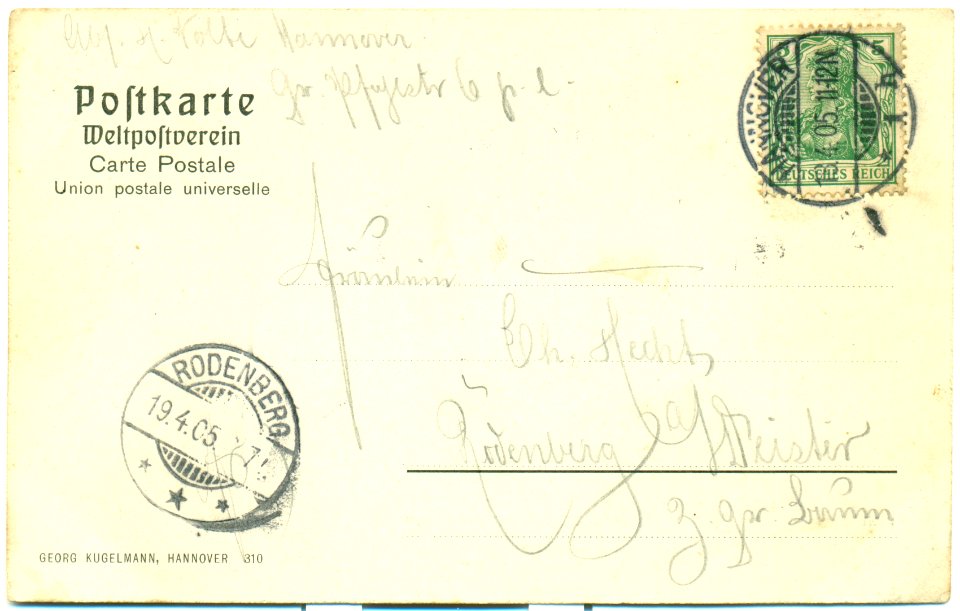 Abs. H. Nolte Hannover
Gr. Pfahlstr 6 p. l.
Poſtkarte
Weltpoſtverein
Carte Postale
Union postale universelle
5
HANNOVER
1 h
19.4.05. 11-12N
DEUTSCHES REICH
Fräulein
Ch. Hecht
Rodenberg a/ Deister
z. gr. Baum
RODENBERG
19.4.05.
GEORG KUGELMANN, HANNOVER 310